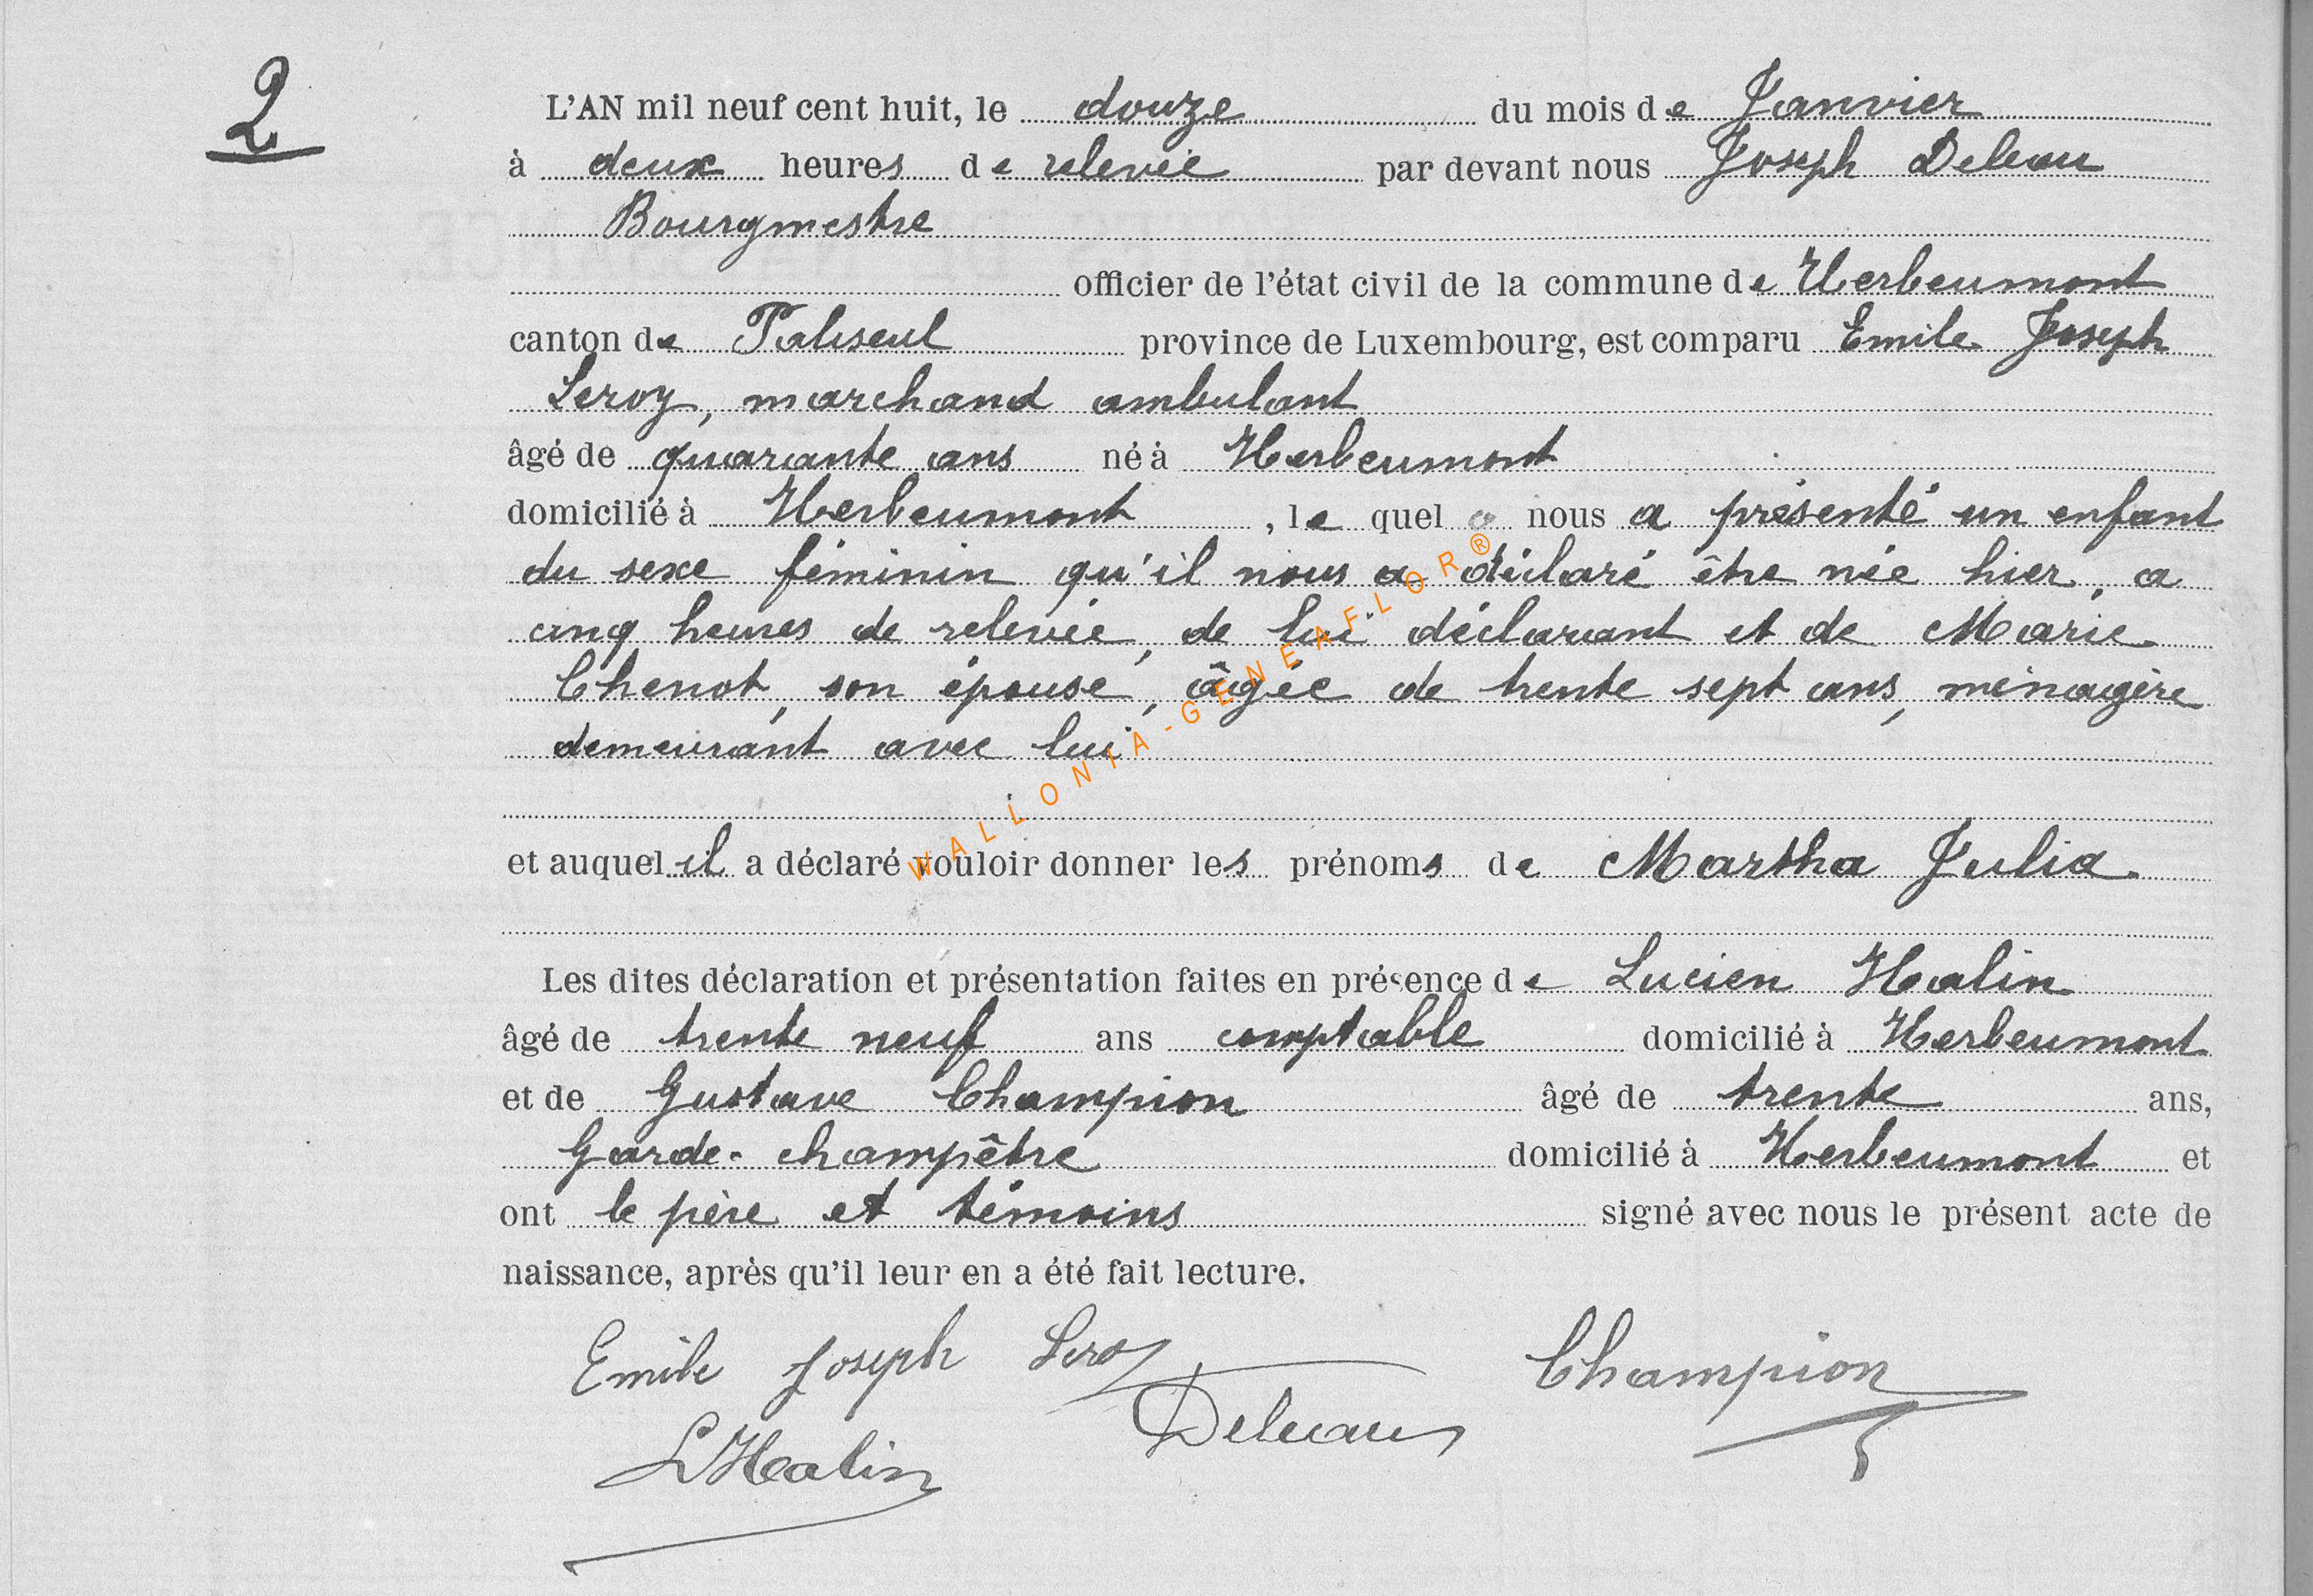 2
L'AN mil neuf cent huit, le douze du mois de Janvier
à deux heures de relevée par devant nous Joseph Deleau
Bourgmestre
officier de l'état civil de la commune de Herbeumont
canton de Paliseul province de Luxembourg, est comparu Emile Joseph
Leroy, marchand ambulant
âgé de quarante ans né à Herbeumont
domicilié à Herbeumont, le quel nous a présenté un enfant
du sexe féminin qu'il nous a déclaré être née hier, a
cinq heures de relevée, de lui déclarant et de Marie
Chenot, son épouse, âgée de trente sept ans, ménagère
demeurant avec lui
et auquel il a déclaré vouloir donner les prénoms de Martha Julia
Les dites déclaration et présentation faites en présence de Lucien Halin
âgé de trente neuf ans comptable domicilié à Herbeumont
et de Gustave Champion âgé de trente ans,
Garde-champêtre domicilié à Herbeumont et
ont le père et témoins signé avec nous le présent acte de
naissance, après qu'il leur en a été fait lecture.
Emile Joseph Leroy
Champion
Deleau
L Halin
WALLONIA-GENEAFLOR®